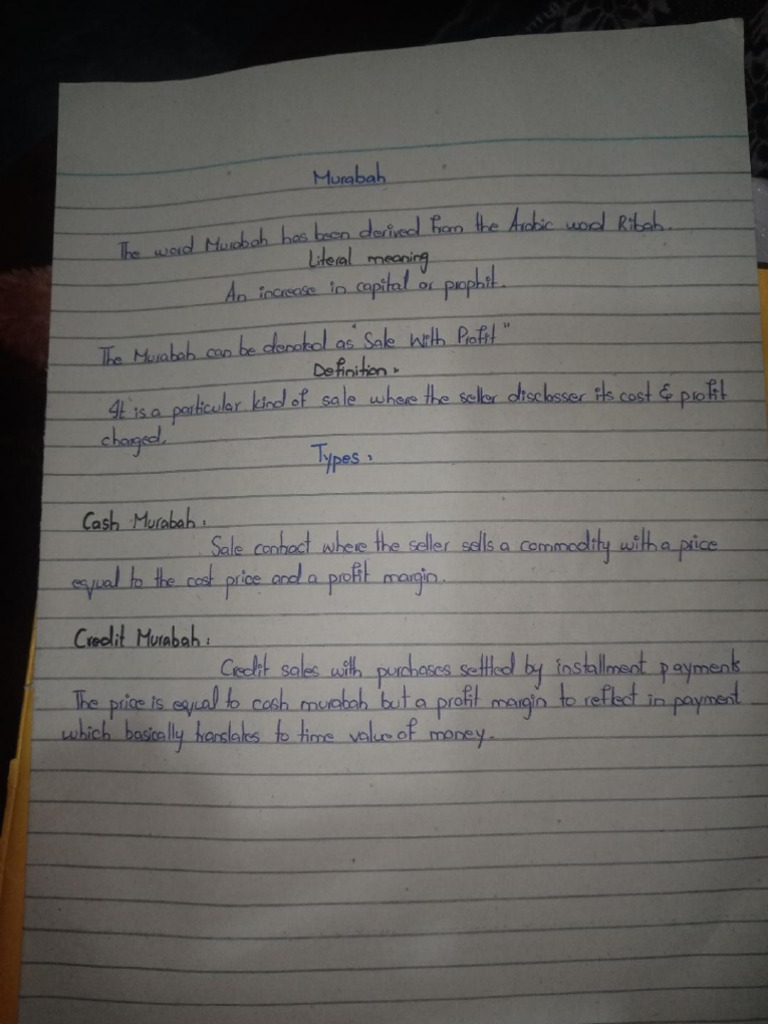 Murabah
The word Murabah has been derived from the Arabic word Ribah.
Literal meaning
An increase in capital or prophit.
The Murabah can be denoted as "Sale With Profit"
Definition.
It is a particular kind of sale where the seller disclosser its cost & profit
charged.
Types.
Cash Murabah.
Sale contract where the seller sells a commodity with a price
equal to the cost price and a profit margin.
Credit Murabah.
Credit sales with purchases settled by installment payments
The price is equal to cash murabah but a profit margin to reflect in payment
which basically translates to time value of money.